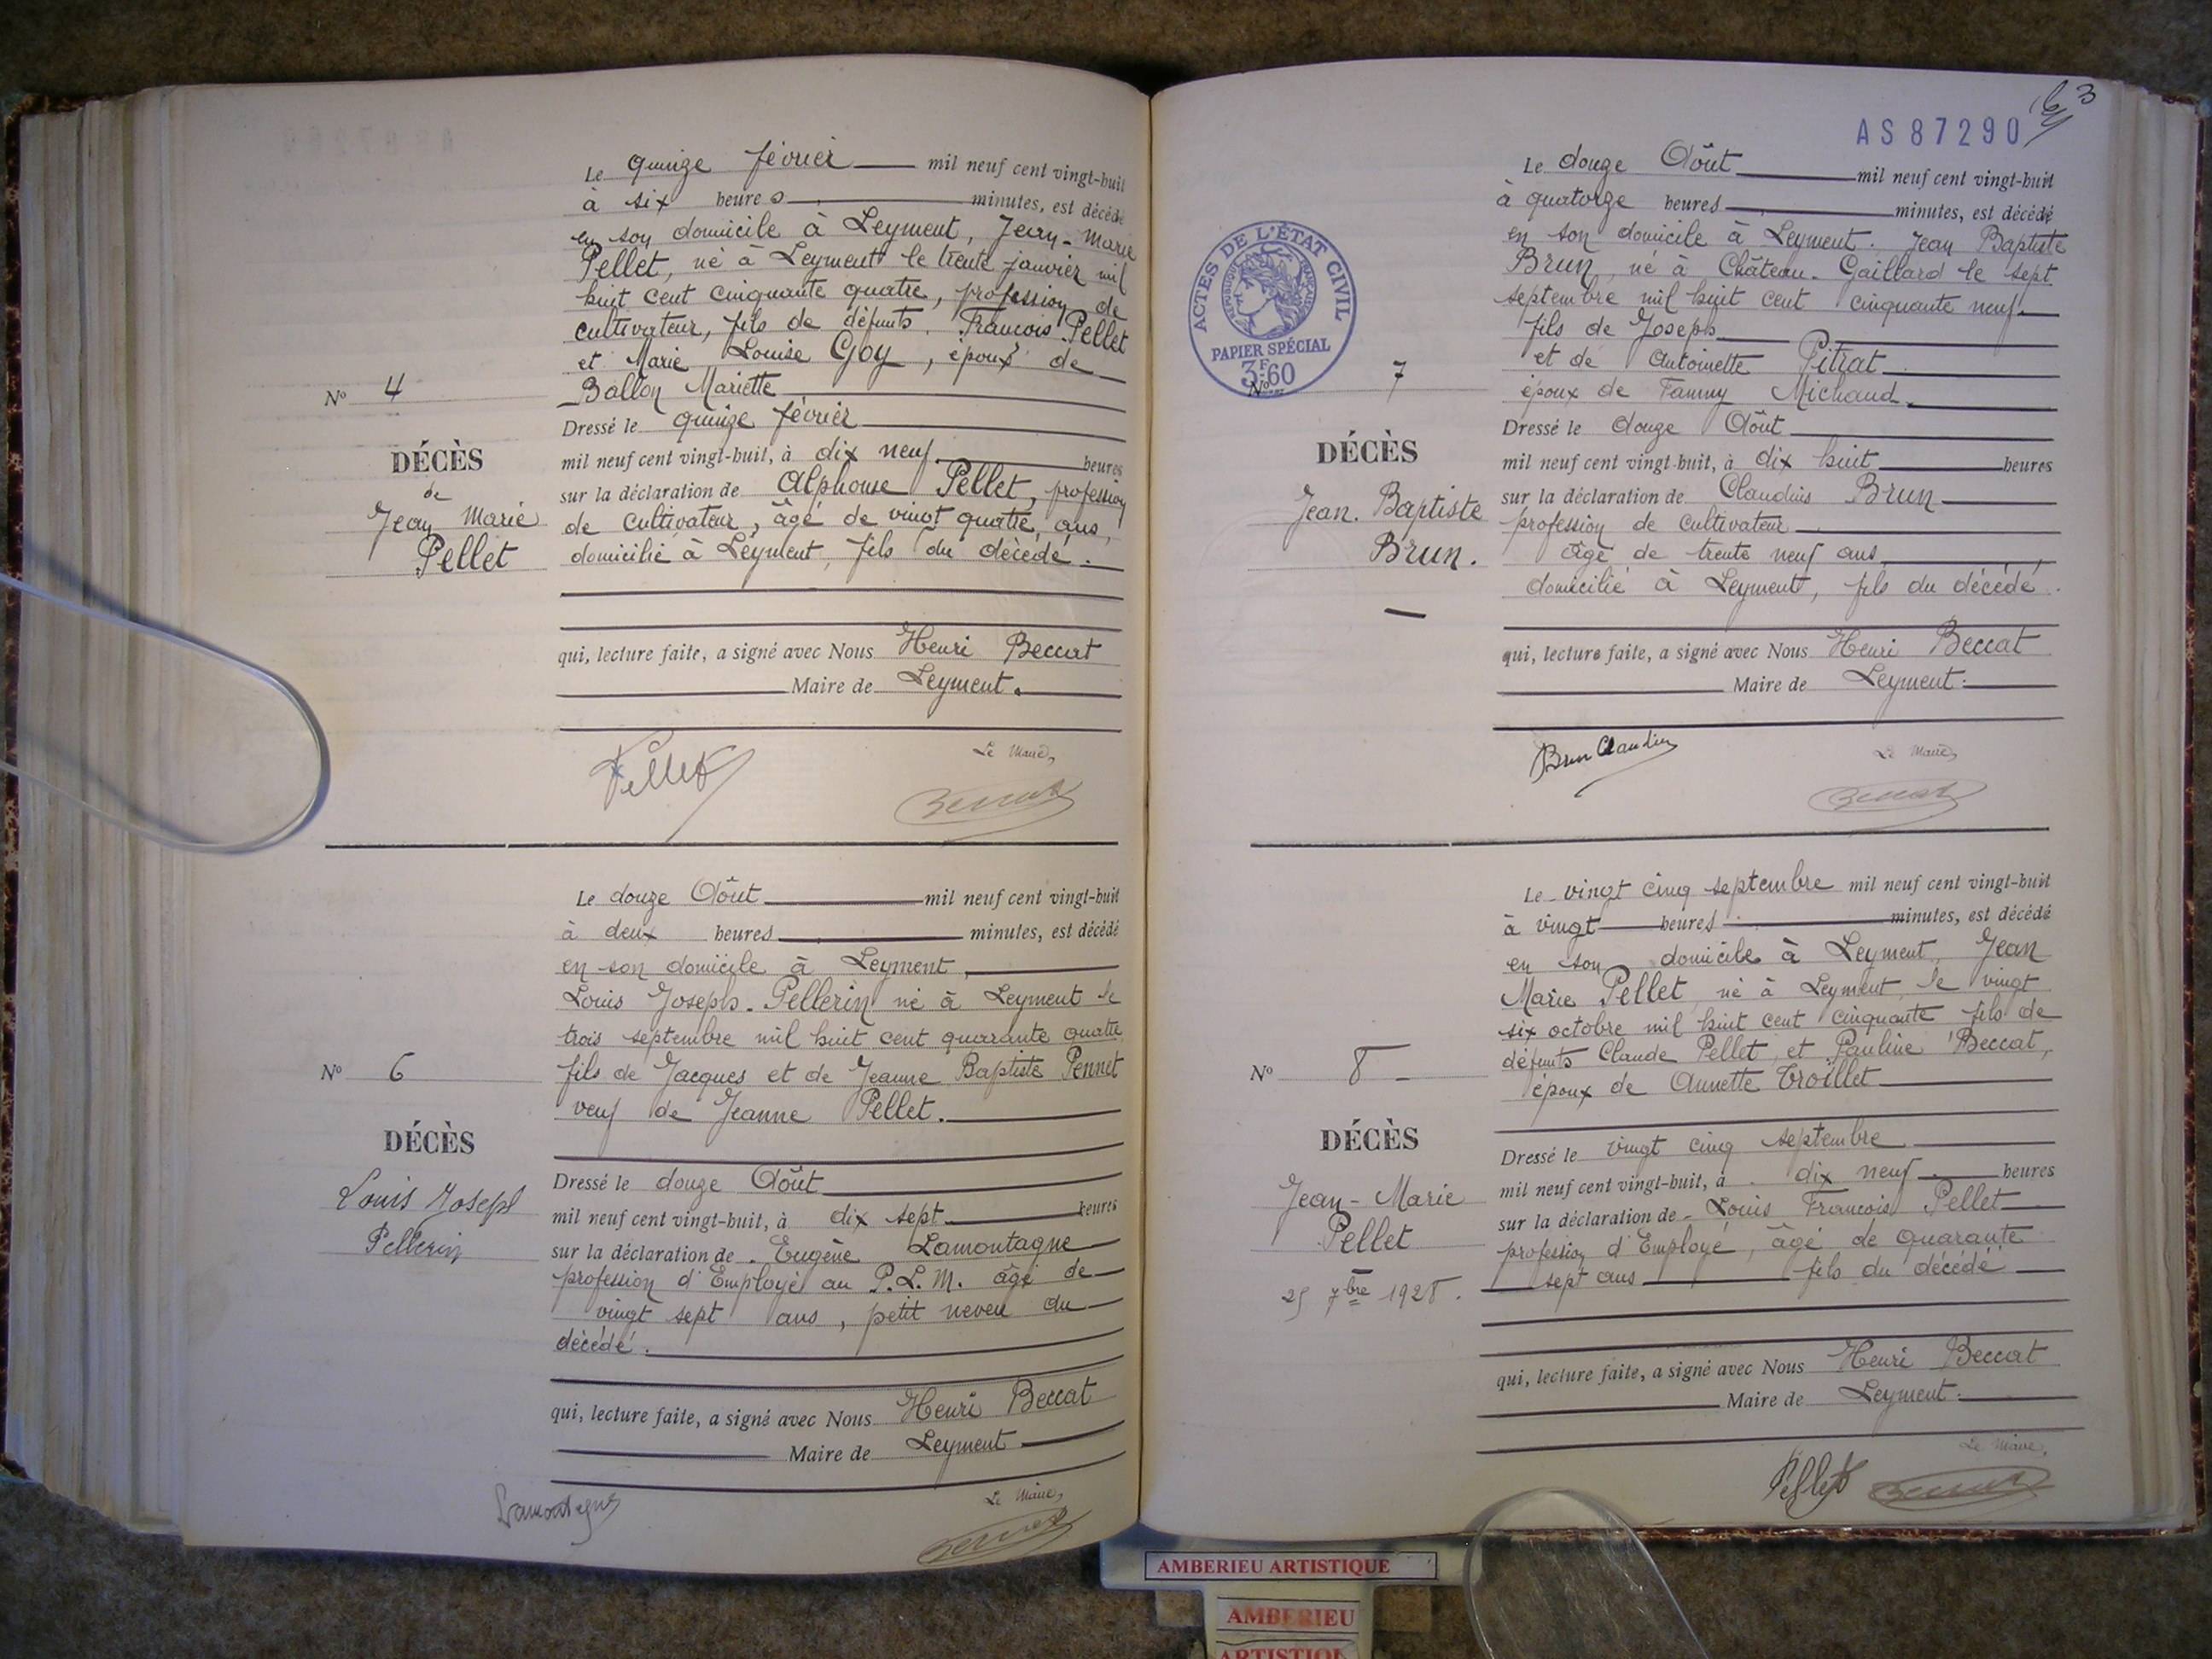 Le quinze février mil neuf cent vingt-huit
à six heures minutes, est décédé
en son domicile à Leyment, Jean-Marie
Pellet, né à Leyment le trente janvier mil
huit cent cinquante quatre, profession de
cultivateur, fils de défunts. François Pellet
et Marie Louise Goy, époux de
Ballon Mariette
Nº 4
Dressé le quinze février
mil neuf cent vingt-huit, à dix neuf heures
DÉCÈS
de
Jean Marie
Pellet
sur la déclaration de Alphonse Pellet, profession
de cultivateur, âgé de vingt quatre ans,
domicilié à Leyment, fils du décédé.
qui, lecture faite, a signé avec Nous Henri Beccat
Maire de Leyment.
Pellet
Le Maire,
Beccat
Le douze Août mil neuf cent vingt-huit
à deux heures minutes, est décédé
en son domicile à Leyment,
Louis Joseph. Pellerin né à Leyment le
trois septembre mil huit cent quarante quatre
Nº 6
fils de Jacques et de Jeanne Baptiste Pennet
veuf de Jeanne Pellet.
DÉCÈS
Louis Joseph
Pellerin
Dressé le douze Août
mil neuf cent vingt-huit, à dix sept heures
sur la déclaration de Eugène Lamontagne
profession d'Employé au P.L.M. âgé de
vingt sept ans, petit neveu du
décédé.
qui, lecture faite, a signé avec Nous Henri Beccat
Maire de Leyment
Lamontagne
Le Maire,
Beccat
3
AS87290
ACTES DE L'ÉTAT CIVIL
RÉPUBLIQUE FRANÇAISE
PAPIER SPÉCIAL
3F60
Le douze Août mil neuf cent vingt-huit
à quatorze heures minutes, est décédé
en son domicile à Leyment. Jean Baptiste
Brun, né à Château-Gaillard le sept
septembre mil huit cent cinquante neuf.
fils de Joseph
et de Antoinette Pitrat
Nº 7
époux de Fanny Michaud.
Dressé le douze Août
DÉCÈS
Jean. Baptiste
Brun.
mil neuf cent vingt-huit, à dix huit heures
sur la déclaration de Claudius Brun
profession de cultivateur
âgé de trente neuf ans
domicilié à Leyment, fils du décédé.
qui, lecture faite, a signé avec Nous Henri Beccat
Maire de Leyment.
Brun Claudius
Le Maire,
Beccat
Le vingt cinq septembre mil neuf cent vingt-huit
à vingt heures minutes, est décédé
en son domicile à Leyment, Jean
Marie Pellet, né à Leyment, le vingt
six octobre mil huit cent cinquante fils de
défunts Claude Pellet, et Pauline Beccat,
Nº 8
époux de Annette Troillet
DÉCÈS
Jean-Marie
Pellet
25 7bre 1928.
Dressé le vingt cinq septembre
mil neuf cent vingt-huit, à dix neuf heures
sur la déclaration de Louis François Pellet
profession d'Employé, âgé de quarante
sept ans fils du décédé
qui, lecture faite, a signé avec Nous Henri Beccat
Maire de Leyment.
Le Maire,
Pellet
Beccat
AMBERIEU ARTISTIQUE
AMBERIEU
ARTISTIQUE